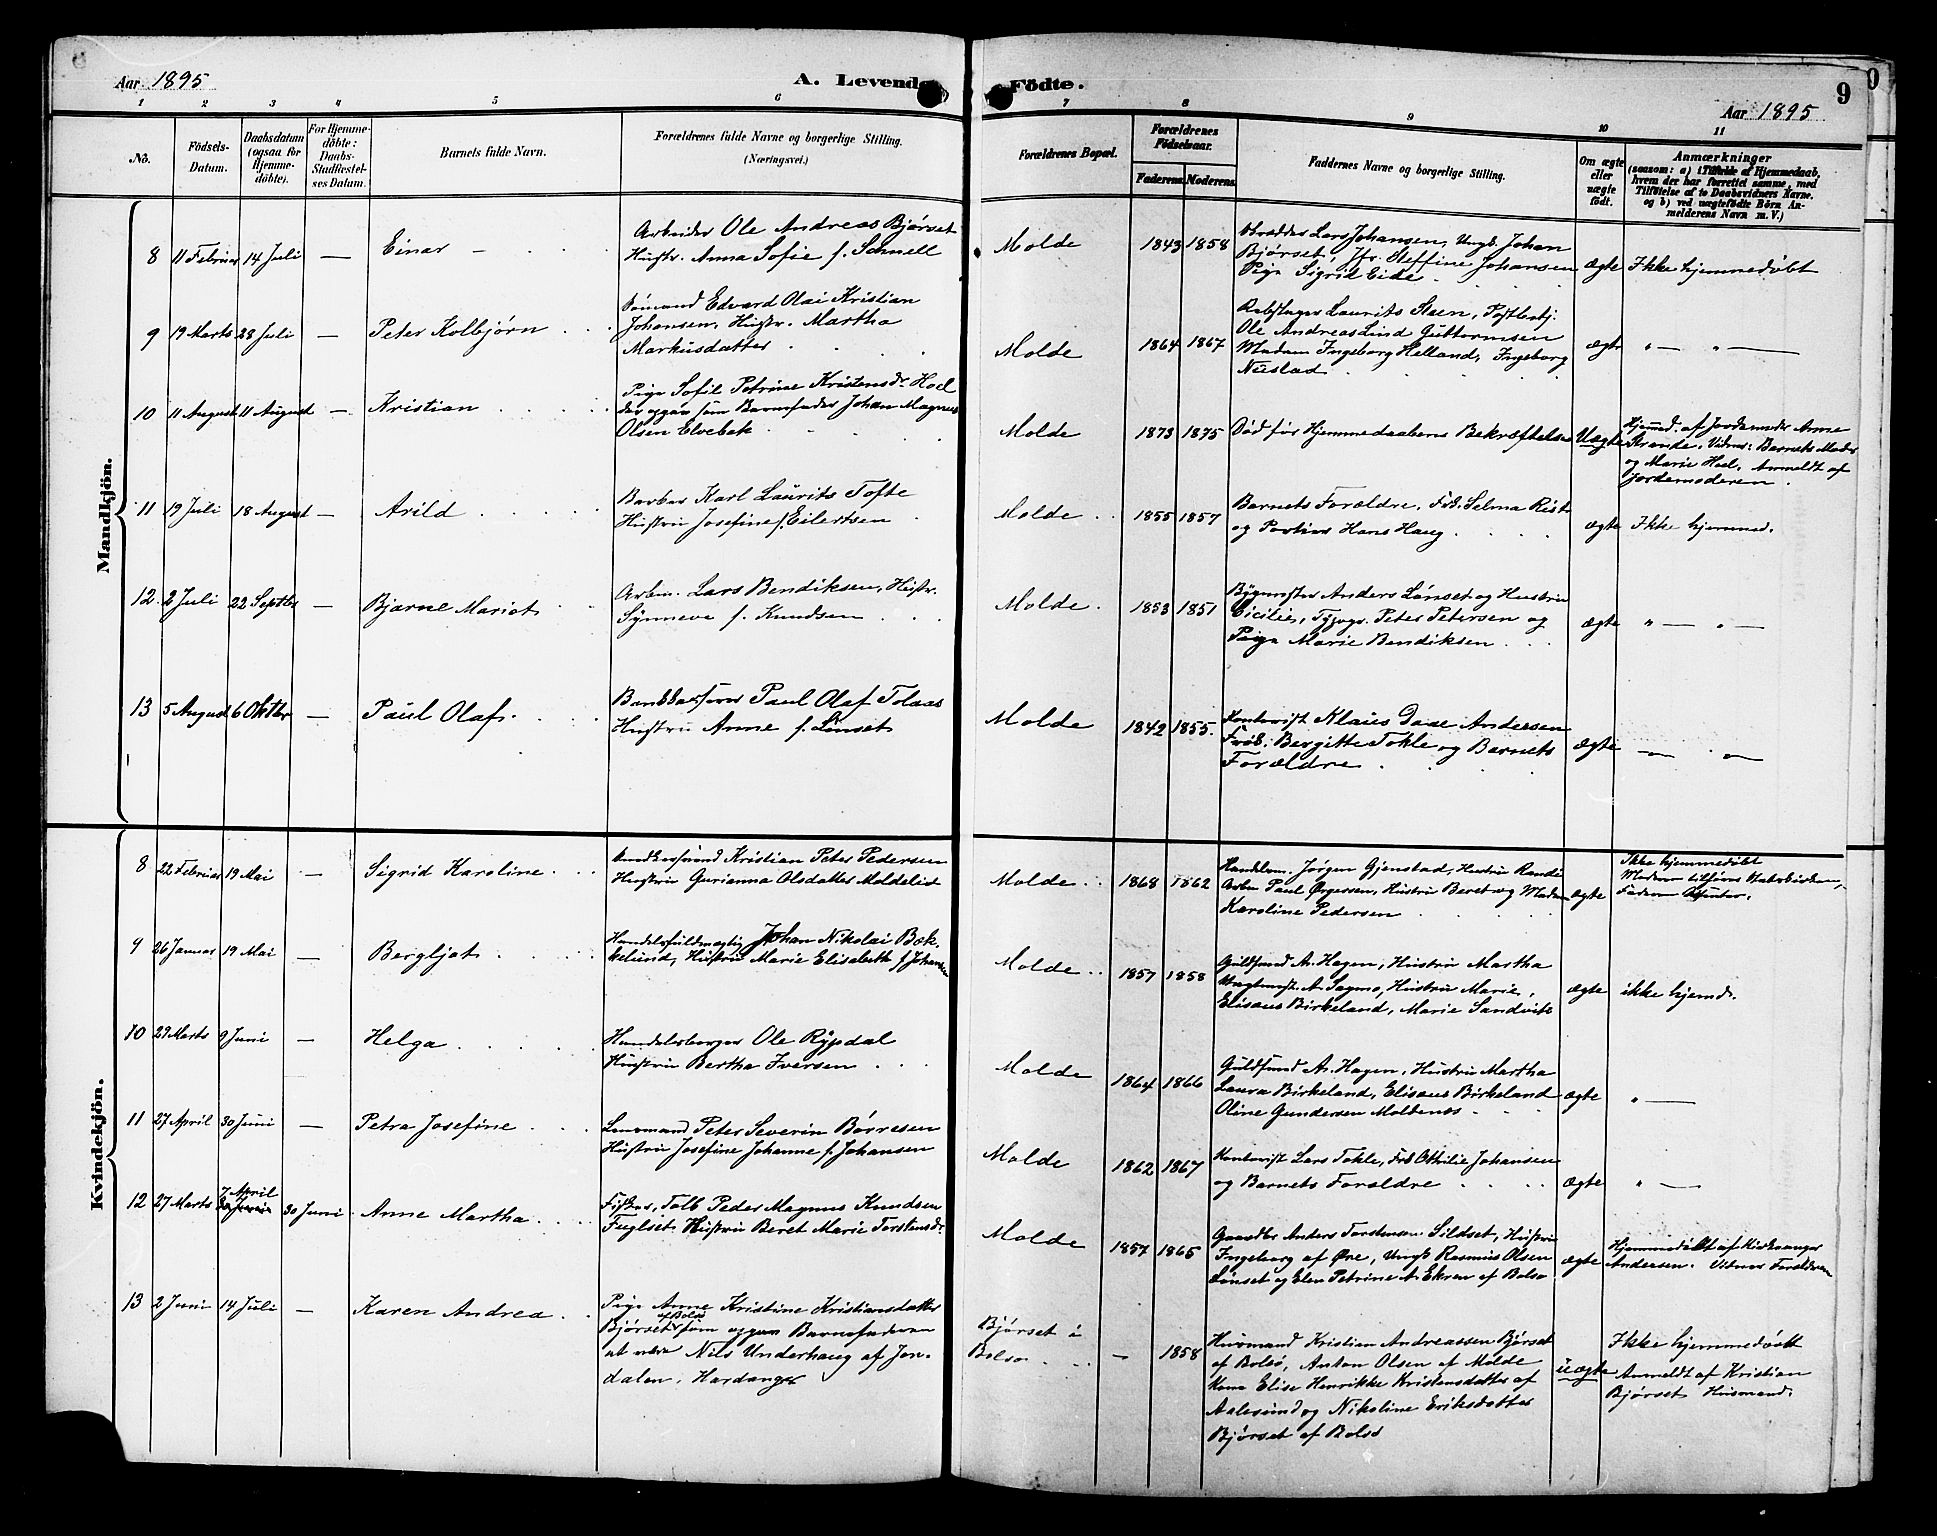 Aar 1895
A. Levende
Födte.
9
Aar 1895
1 2 3 4 5 6 7 8 9 10 11
No.
Födsels-Datum.
Daabsdatum (ogsaa for Hjemme-döbte).
For Hjemme-döbte: Daabs-Stadfæstel-ses Datum.
Barnets fulde Navn.
Forældrenes fulde Navne og borgerlige Stilling.
(Næringsvei.)
Forældrenes Bopæl.
Forældrenes Födselsaar.
Faderens. Moderens.
Faddernes Navne og borgerlige Stilling.
Om ægte eller uægte födt.
Anmærkninger
(saasom: a) i Tilfælde af Hjemmedaab,
hvem der har forrettet samme, med
Tilföielse af to Daabsvidners Navne,
og b) ved uægtefödte Börn An-
melderens Navn m. V.)
Mandkjön.
8 11 Februar 14 Juli — Einar —
Arbeider Ole Andreas Bjørset
Hustr. Anna Sofie f. Schnell
Molde 1843 1858
Lars Johansen, Ungk. Johan
Bjørset, Jfr. Steffine Johansen
Pige Sigrid Eide
ægte Ikke hjemmedøbt
9 19 Marts 28 Juli — Peter Kolbjørn
Sömand Edvard Olai Kristian
Johansen, Hustr. Martha
Markusdatter
Molde 1864 1867
Rebslager Laurits Steen, Postbetj.
Ole Andreas Lind Guttormsen
Madam Ingeborg Helland, Ingeborg
Neistad
ægte " — " —
10 11 August 11 August — Kristian
Pige Sofie Petrine Kristensdr. Hoel
der opgav som Barnefader Johan Magnus
Olsen Elvebak
Molde 1873 1875
Död før Hjemmedaabens Bekræftelse
Uægte
Hjemmed. af Jordemoder Anne
Strande. Vidner: Barnets Moder
og Marie Hoel. Anmeldt af
Jordemoderen.
11 19 Juli 18 August — Arild
Barber Karl Laurits Tofte
Hustru Josefine f. Eilertsen
Molde 1855 1857
Barnets Forældre, Frk. Selma Rist
og Portier Hans Haug
ægte Ikke hjemmed.
12. 2 Juli 22 Septbr — Bjarne Mariot
Arbm. Lars Bendiksen, Hustr.
Synneve f. Knudsen
Molde. 1853 1851
Bygmester Anders Lønset og Hustru
Cicilie, Typogr. Peter Petersen og
Pige Marie Bendiksen
ægte " — " —
13 5 August 6 Oktbr — Paul Olaf.
Bankkasserer Paul Olaf Tolaas
Hustru Anne f. Lönset
Molde 1842 1855.
Kontorist Klaus Daae Andersen
Frök. Bergitte Tokle og Barnets
Forældre
ægte — " — " —
Kvindekjön.
8 22 Februar 19 Mai — Sigrid Karoline
Kristian Peter Pedersen
Hustru Gurianna Olsdatter Moldelid
Molde 1868 1862
Handelsm. Jørgen Gjenstad, Hustru Randi
Arbm Paul Ørgersen, Hustru Beret og Madam
Karoline Pedersen
ægte
Ikke hjemmedøbt
Moderen tilhører Statskirken,
Faderen
9 26 Januar 19 Mai — Bergljot
Handelsfuldmægtig Johan Nikolai Bæk-
kelund, Hustru Marie Elisabeth f. Johansen
Molde 1857 1858
Guldsmed A. Hagen, Hustru Martha
A. Sagmo, Hustru Marie,
Elisæus Birkeland, Marie Sandvik
ægte ikke hjemd.
10 29 Marts 9 Juni — Helga
Handelsborger Ole Rypdal
Hustru Bertha Iversen
Molde 1864 1866
Guldsmed A. Hagen, Hustru Martha
Laura Birkeland, Elisæus Birkeland
Oline Gundersen Moldenæs
ægte " —
11 27 April 30 Juni — Petra Josefine
Lensmand Peter Severin Börresen
Hustru Josefine Johanne f. Johansen
Molde 1862 1867
Kontorist Lars Tokle, Frk Othilie Johansen
og Barnets Forældre
ægte " —
12 27 Marts 7 April 30 Juni Anne Martha
Fisker, Tolb Peder Magnus Knudsen
Fuglset Hustru Beret Marie Torstensdr.
Molde 1857 1865
Gaardbr Anders Torstensen Sildset, Hustru
Ingeborg af Øre, Ungk Rasmus Olsen
Lönset og Elen Petrine A. Ekren af Bolsø
ægte
Hjemmedøbt af Kirkesanger
Andersen. Vidner Forældrene
13 2 Juni 14 Juli — Karen Andrea
Pige Anne Kristine Kristiansdatter
Bjørset af Bolsø som opgav Barnefaderen
at være Nils Underhaug af Jon-
dalen, Hardanger
Bjørset i
Bolsø
— 1858
Husmand Kristian Andreassen Bjørset
af Bolsø, Anton Olsen af Molde
Kone Elise Henrikke Kristensdatter af
Aalesund og Nikoline Eriksdatter
Bjørset af Bolsø
uægte
Ikke hjemmedöbt
Anmeldt af Kristian
Bjørset Husmand.